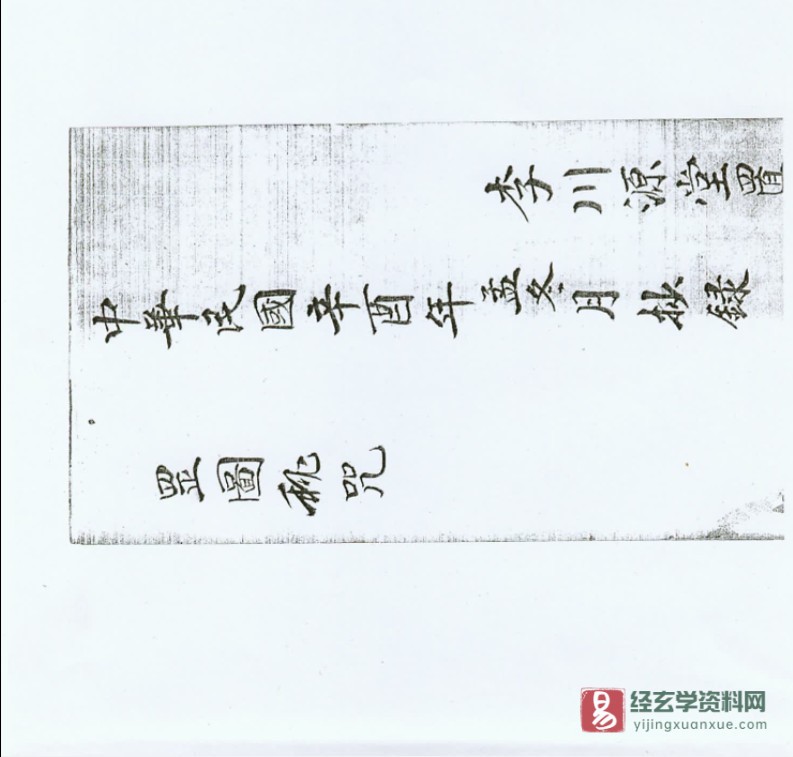 李川源堂置
中華民國辛酉年孟冬月抄録
罡圖秘咒
经玄学资料网
yijingxuanxue.com
易